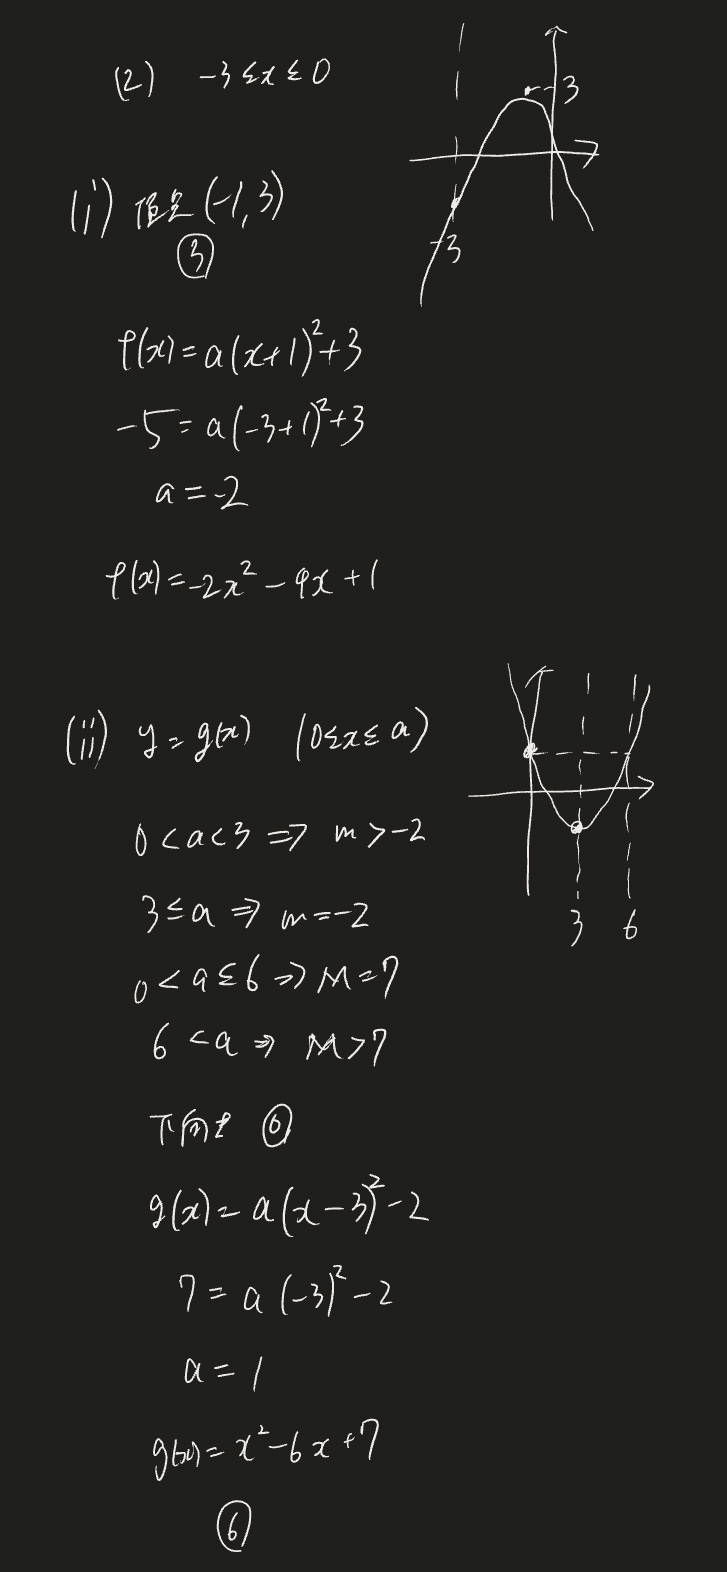 (2) -3≦x≦0
3
-3
(i) 頂点 (-1,3)
③
f(x)=a(x+1)²+3
-5=a(-3+1)²+3
a=-2
f(x)=-2x²-4x+1
(ii) y=g(x) (0≦x≦a)
0<a<3 ⇒ m>-2
3≦a ⇒ m=-2
3 6
0<a≦6 ⇒ M=7
6<a ⇒ M>7
下向き ⑥
g(x)=a(x-3)²-2
7=a(-3)²-2
a=1
g(x)=x²-6x+7
⑥